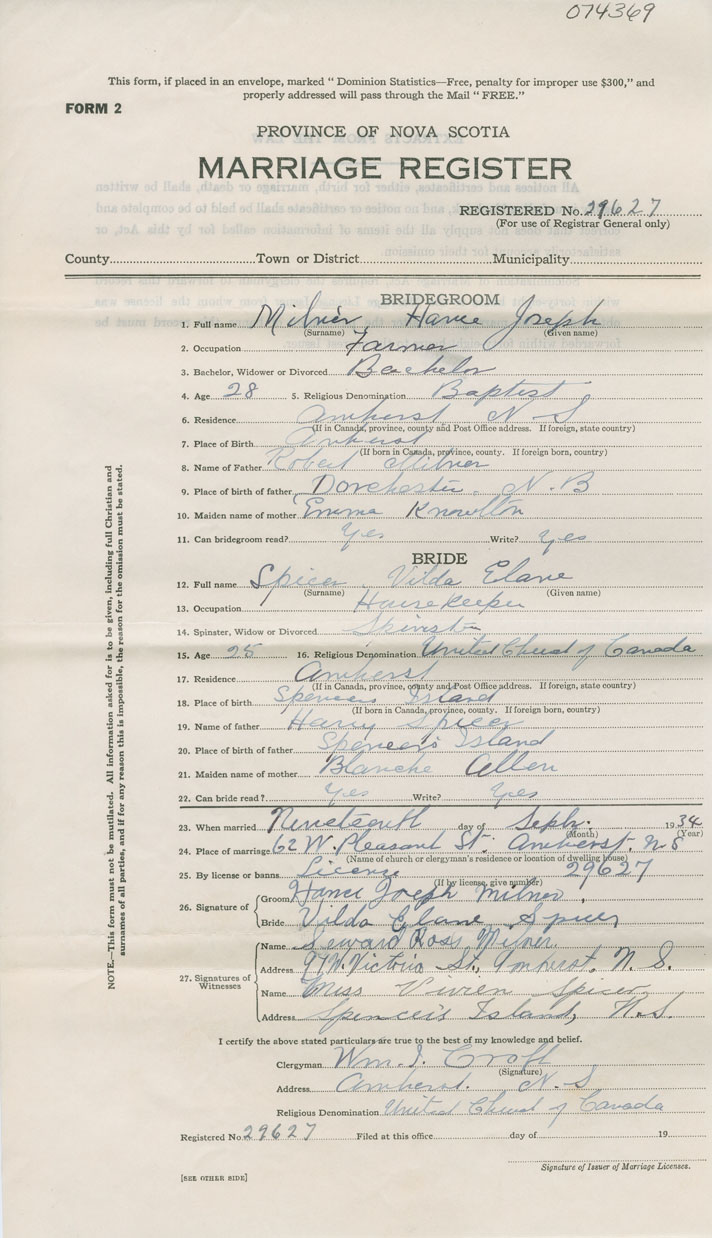 074369
This form, if placed in an envelope, marked " Dominion Statistics—Free, penalty for improper use $300," and
properly addressed will pass through the Mail " FREE."
FORM 2
PROVINCE OF NOVA SCOTIA
MARRIAGE REGISTER
REGISTERED No. 29627
(For use of Registrar General only)
County Town or District Municipality
BRIDEGROOM
1. Full name Milner Hance Joseph
(Surname) (Given name)
2. Occupation Farmer
3. Bachelor, Widower or Divorced Bachelor
4. Age 28 5. Religious Denomination Baptist
6. Residence Amherst N S
(If in Canada, province, county and Post Office address. If foreign, state country)
7. Place of Birth Amherst
(If born in Canada, province, county. If foreign born, country)
8. Name of Father Robert Milner
9. Place of birth of father Dorchester, N.B
10. Maiden name of mother Emma Knowlton
11. Can bridegroom read? Yes Write? Yes
BRIDE
12. Full name Spicer, Vilda Elane
(Surname) (Given name)
13. Occupation Housekeeper
14. Spinster, Widow or Divorced Spinster
15. Age 25 16. Religious Denomination United Church of Canada
17. Residence Amherst
(If in Canada, province, county and Post Office address. If foreign, state country)
18. Place of Birth Spencers Island
(If born in Canada, province, county. If foreign born, country)
19. Name of father Harry Spicer
20. Place of birth of father Spencer's Island
21. Maiden name of mother Blanche Allen
22. Can bride read? Yes Write? Yes
23. When married Nineteenth day of Sept. 1934
(Month) (Year)
24. Place of marriage 62 W. Pleasant St. Amherst. N S
(Name of church or clergyman's residence or location of dwelling house)
25. By license or banns License 29627
(If by license, give number)
26. Signature of
Groom Hance Joseph Milner,
Bride Vilda Elane Spicer
27. Signatures of Witnesses
Name Seward Ross Milner
Address 97 W. Victoria St., Amherst, N. S.
Name Miss Vivien Spicer
Address Spencer's Island, N.S.
I certify the above stated particulars are true to the best of my knowledge and belief.
Clergyman Wm. I. Croft
(Signature)
Address Amherst. N. S
Religious Denomination United Church of Canada
Registered No. 29627 Filed at this office day of 19
Signature of Issuer of Marriage Licenses.
[SEE OTHER SIDE]
NOTE.—This form must not be mutilated. All information asked for is to be given, including full Christian and
surnames of all parties, and if for any reason this is impossible, the reason for the omission must be stated.